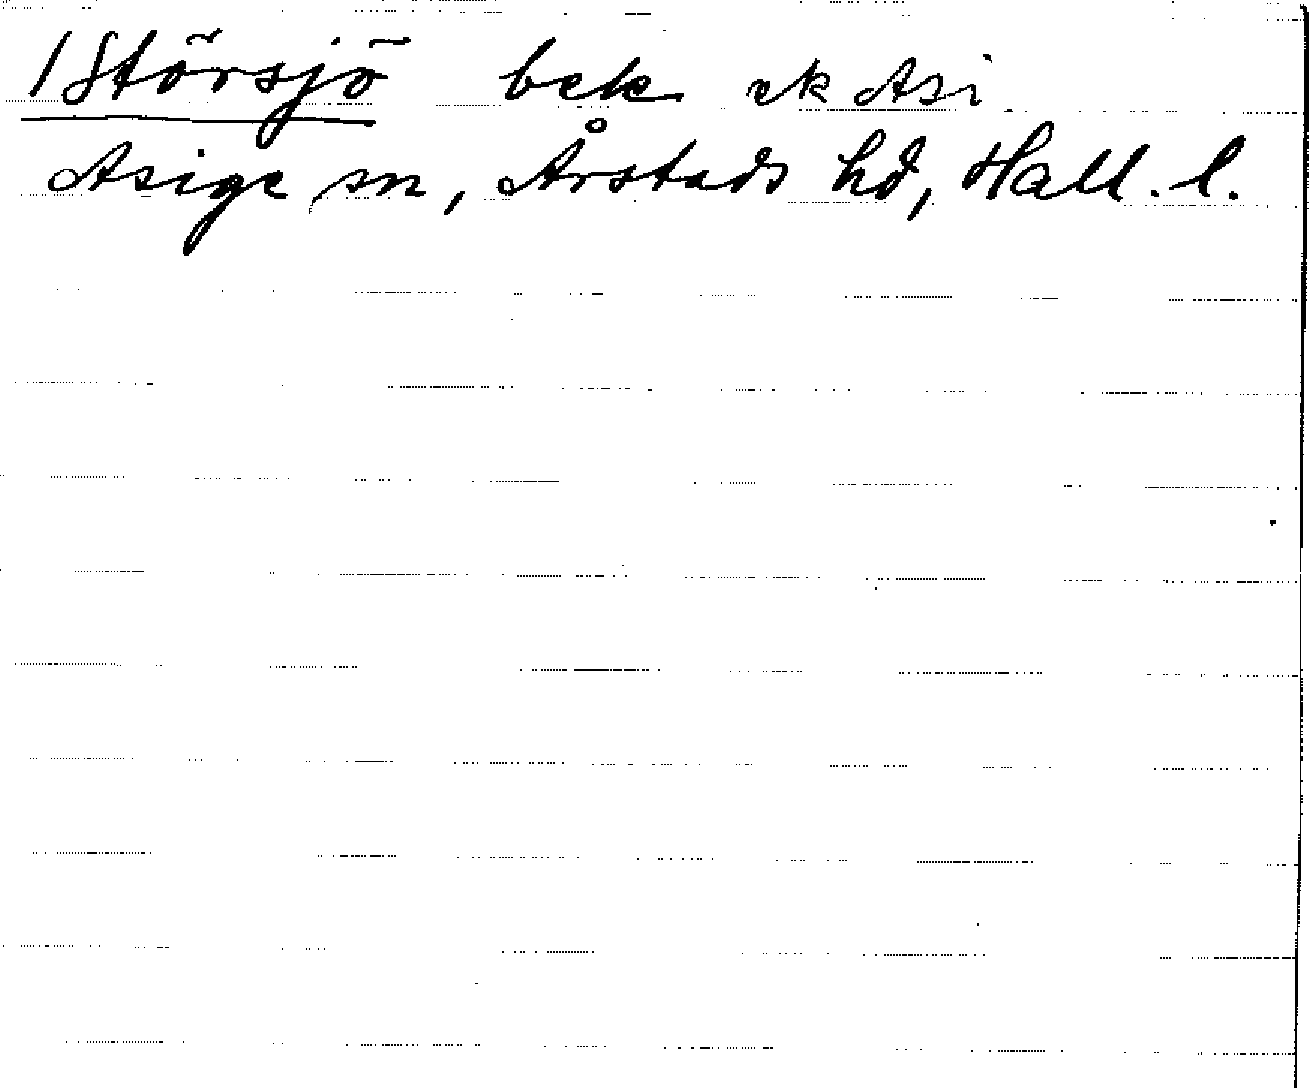 /Störsjö bebe ek Asi
Asige sn, Årstads hd, Hall. l.